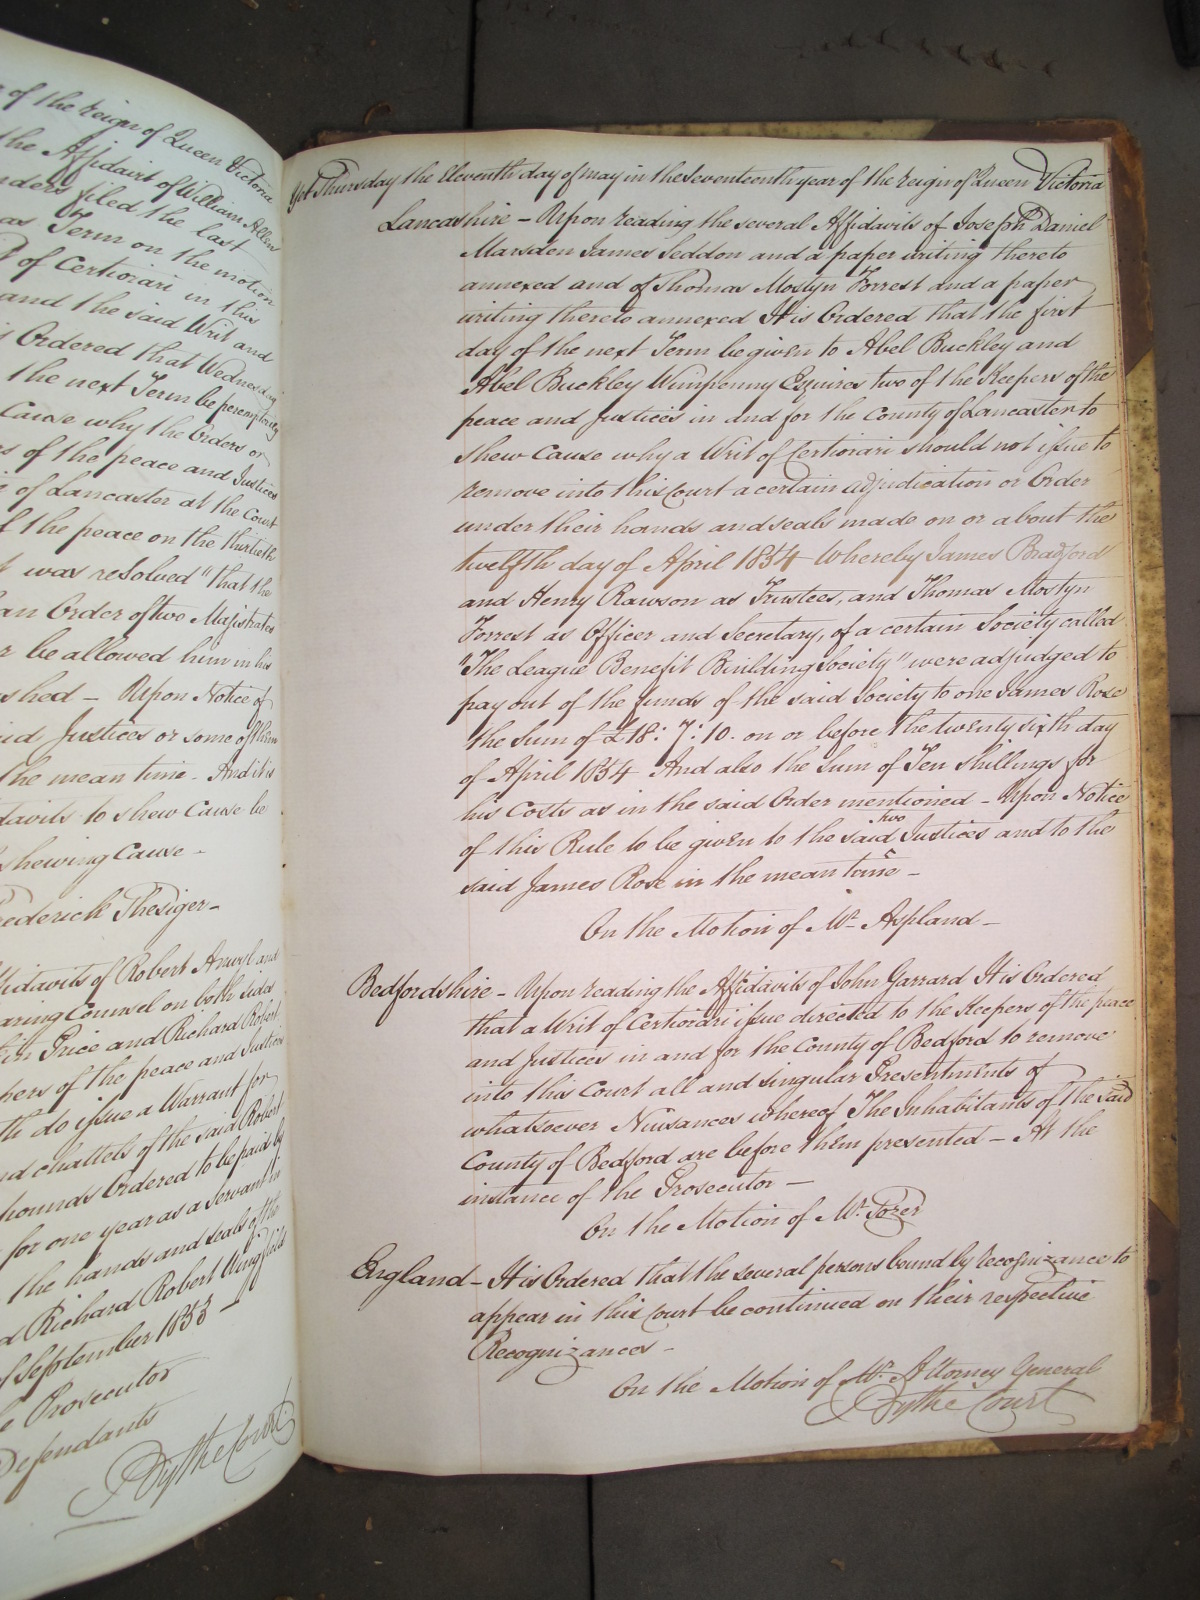 of the reign of Queen Victoria
the Affidavit of William Allen
filed the last
Term on the motion
of Certiorari in this
and the said Writ and
Ordered that Wednesday
the next Term be peremptorily
Cause why the Orders or
of the peace and Justices
of Lancaster at the Court
the peace on the thirtieth
was resolved "that the
an Order of two Majistrates
be allowed him in his
Upon Notice of
Justices or some of them
the mean time - And it is
to shew Cause be
shewing Cause -
Frederick Thesiger -
Affidavits of Robert Anwyl and
Counsel on both sides
Price and Richard Robert
of the peace and Justices
do issue a Warrant for
chattels of the said Robert
Ordered to be paid by
for one year as a Servant in
the hands and seals of the
Richard Robert Wingfield
September 1853 -
Prosecutor
Defendants
By the Court
Yet Thursday the Eleventh day of May in the Seventeenth year of the reign of Queen Victoria
Lancashire - Upon reading the several Affidavits of Joseph Daniel
Marsden James Seddon and a paper writing thereto
annexed and of Thomas Mostyn Forrest and a paper
writing thereto annexed It is Ordered that the first
day of the next Term be given to Abel Buckley and
Abel Buckley Wimpenny Esquires two of the Keepers of the
peace and Justices in and for the County of Lancaster to
shew Cause why a Writ of Certiorari should not issue to
remove into this Court a certain adjudication or Order
under their hands and seals made on or about the
twelfth day of April 1854 Whereby James Bradford
and Henry Rawson as Trustees, and Thomas Mostyn
Forrest as Officer and Secretary, of a certain Society called
"The League Benefit Building Society" were adjudged to
pay out of the funds of the said Society to one James Rose
the Sum of £18: 7: 10. on or before the twenty sixth day
of April 1854 And also the Sum of Ten shillings for
his Costs as in the said Order mentioned - Upon Notice
of this Rule to be given to the said two Justices and to the
said James Rose in the mean time -
On the Motion of Mr. Aspland -
Bedfordshire - Upon reading the Affidavits of John Garrard It is Ordered
that a Writ of Certiorari issue directed to the Keepers of the peace
and Justices in and for the County of Bedford to remove
into this Court all and singular Presentments of
whatsoever Nuisances whereof The Inhabitants of the said
County of Bedford are before them presented - At the
instance of the Prosecutor -
On the Motion of Mr. Tozer
England - It is Ordered that the several persons bound by recognizance to
appear in this Court be continued on their respective
Recognizances -
On the Motion of Mr. Attorney General
By the Court